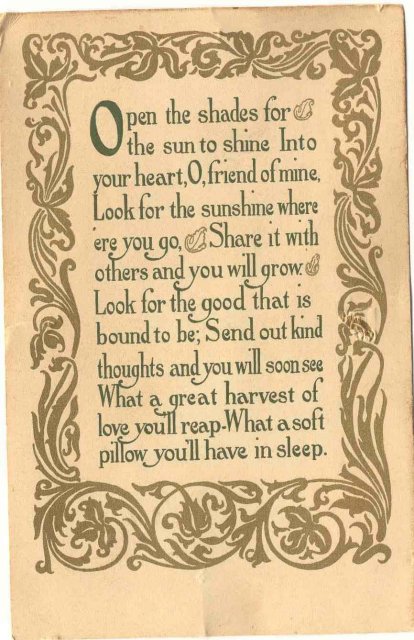 Open the shades for
the sun to shine Into
your heart, O, friend of mine,
Look for the sunshine where
ere you go, Share it with
others and you will grow:
Look for the good that is
bound to be; Send out kind
thoughts and you will soon see
What a great harvest of
love you'll reap-What a soft
pillow you'll have in sleep.